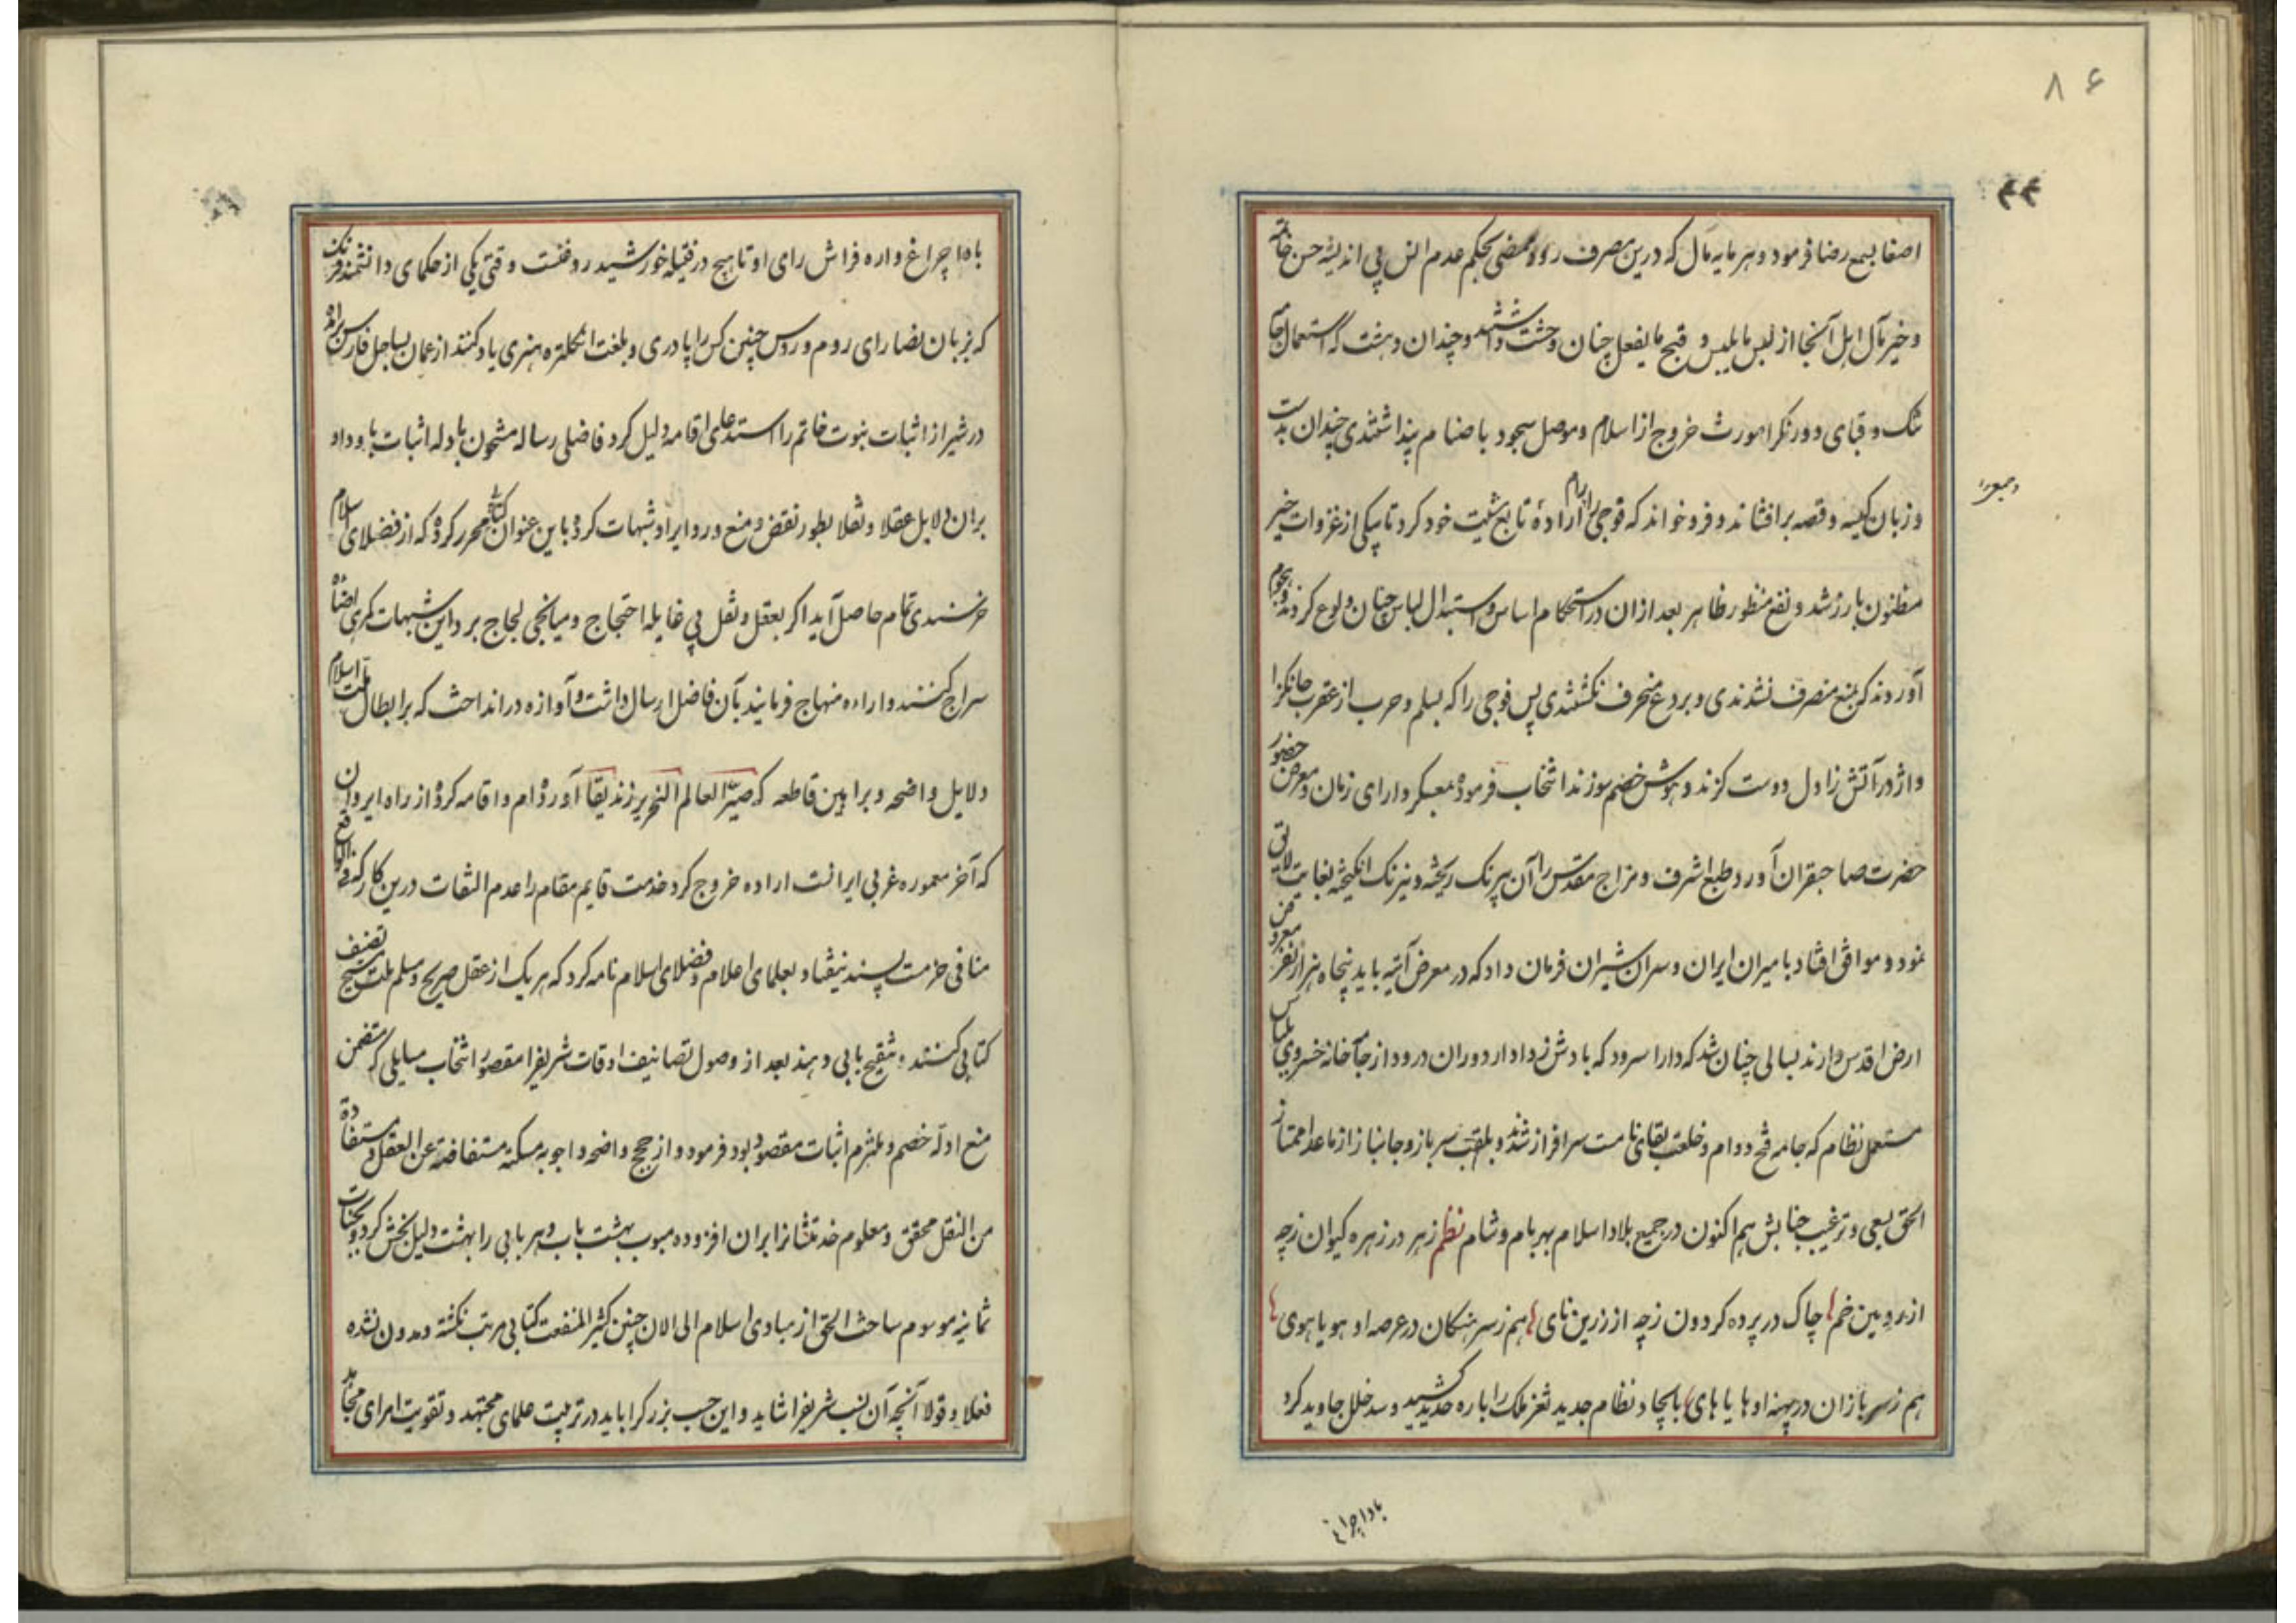 ۸۶
اصغا بسمع رضا فرمود و هر مایه مال که درین مصرف رود ممضی بحکم عدم النس پی اندیشه حسن خاتمه
و خیر مآل اهل آنجا از لبس ما یلبس و قبح ما یفعل چنان وحشت داشتند و چندان دهشت که استعمال جامه
تنک و قبای دورنک را مورث خروج از اسلام و موصل سجود باصنام پنداشتندی چندان بدست
و زبان کیسه و قصه برافشاند و فرو خواند که فوجی را رام اراده تابع مشیت خود کرد تا بیکی از غزوات خبر
مظنون بارز شد و نفع منظور ظاهر بعد ازان در استحکام اساس و استبدال لباس چنان ولوع کردند و هجوم
آوردند که بمنع منصرف نشدندی و بردع منحرف نکشتندی پس فوجی را که بسلم و حرب از عقرب جانکزا
و اژدر آتش زا دل دوست کزند و هوش خصم سوزند انتخاب فرموده بمعسکر دارای زمان و معرض حضور
حضرت صاحبقران آورد طبع اشرف و مزاج مقدس را آن بیرنک ریخته و نیرنک انکیخته بغایت لایق
نمود و موافق افتاد بامیران ایران و سران شیران فرمان داد که در معرض آتیه باید پنجاه هزار نفر معروض
ارض اقدس دارند بسالی چنان شد که دارا سرود که بادش ز دادار دوران درود از جامه خانه خسروی بلباس
مستعمل نظام که جامه فتح و دوام و خلعت بقای نامست سرافراز شدند و بلقب سرباز و جانباز از ماعدا ممتاز
الحق بسعی و ترغیب جنابش هم اکنون در جمیع بلاد اسلام بهر بام و شام نظم زهر در زهره کیوان زچه
از بروبین خم چاک در پرده کردون زچه از زرین نای هم ز سرهنکان در عرصه او هویاهوی
هم ز سربازان در پهنه او هایاهای بایجاد نظام جدید ثغر ملک را باره حدید کشید و سد خلل جاوید کرد
باداچراغ
باداچراغ واره فراش رای او تا هیچ در فتیله خورشید روغنست وقتی یکی از حکمای دانشمند فرنک
که بزبان نصارای روم و روس چنین کس را پادری و بلغت انکلتره هنری یاد کنند از عمان بساحل فارس برآمد
در شیراز اثبات نبوت خاتم را استدعای اقامه دلیل کرد فاضلی رساله مشحون بادله اثبات باو داد
بران دلایل عقلا و نقلا بطور نقض و منع و رد ایراد شبهات کرده باین عنوان کتابی محرر کرده که از فضلای اسلام
خرسندی تمام حاصل آید اکر بعقل و نقل بی غایله احتجاج و میانجی لجاج بر داین شبهات کبری اضاءه
سراج کنند و اراءه منهاج فرمایند بآن فاضل ارسال داشت و آوازه درانداخت که بر ابطال ملت اسلام
دلایل واضحه و براهین قاطعه که صیر العالم النحریر زندیقا آورده‌ام و اقامه کرده از راه ایروان
که آخر معموره غربی ایرانست اراده خروج کرد خدمت قایم مقام را عدم التفات درین کار که فی الواقع
منافی حزمت پسند نیفتاد بعلمای اعلام و فضلای اسلام نامه کرد که هر یک از عقل صریح و مسلم ملت مسیح تصنیف
کتابی کنند و تنقیح بابی دهند بعد از وصول تصانیف اوقات شریفرا مقصور انتخاب مسایلی که متضمن
منع ادله خصم و ملتزم اثبات مقصود بود فرمود و از حجج واضحه و اجوبه مسکته مستفاضة عن العقل و مستفادة
من النقل محقق و معلوم خدمتشانرا بران افزوده مبوب بهشت باب و هر بابی را بهشت دلیل بخش کرد و بجنات
ثمانیه موسوم ساخت الحق از مبادی اسلام الی الان چنین کثیر المنفعت کتابی مرتب نکشته و مدون نشده
فعلا و قولا آنچه آن نسب شریفرا شاید و این حسب بزرکرا باید در تربیت علمای مجتهد و تقویت امرای مجاهد